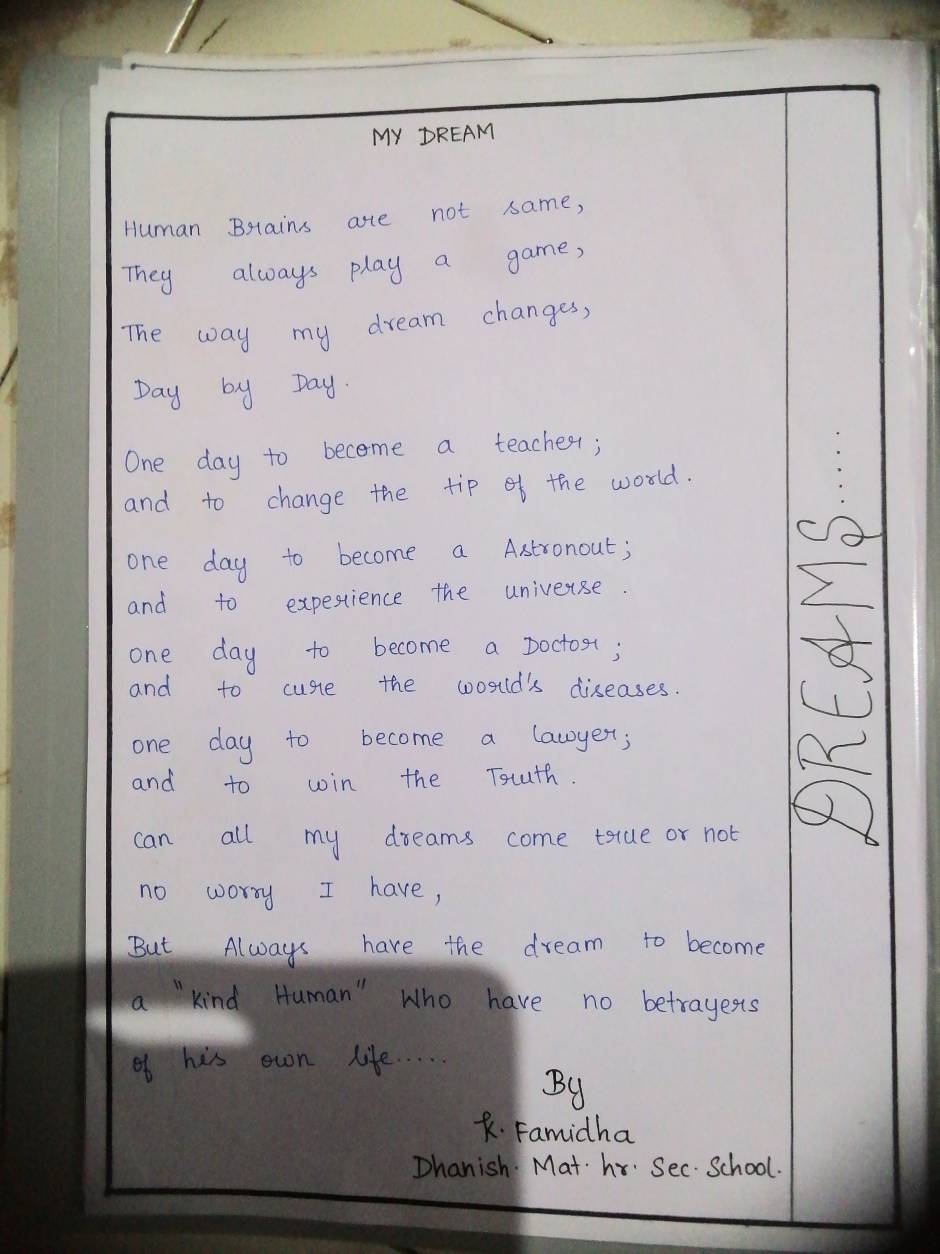 MY DREAM
Human Brains are not same,
They always play a game,
The way my dream changes,
Day by Day.
One day to become a teacher;
and to change the tip of the world.
one day to become a Astronout;
and to experience the universe.
one day to become a Doctor;
and to cure the world's diseases.
one day to become a lawyer;
and to win the Truth.
can all my dreams come true or not
no worry I have,
But Always have the dream to become
a "Kind Human" Who have no betrayers
of his own life.....
By
K. Famidha
Dhanish. Mat. hr. Sec. School.
DREAMS.....